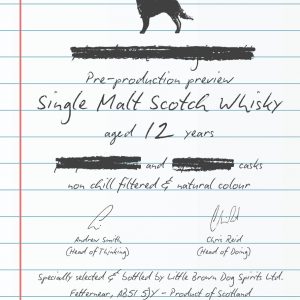 Pre-production preview
Single Malt Scotch Whisky
aged 12 years
and casks
non chill filtered & natural colour
Andrew Smith
(Head of Thinking)
Chris Reid
(Head of Doing)
Specially selected & bottled by Little Brown Dog Spirits Ltd.
Fetternear, AB51 5JY - Product of Scotland